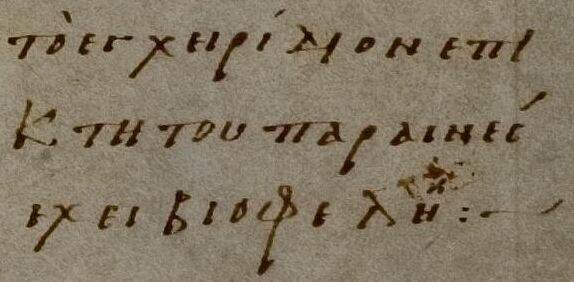 τὸ εγχειρίδιον επι
κτητου παραινεσ
εχει βιοφελη:—